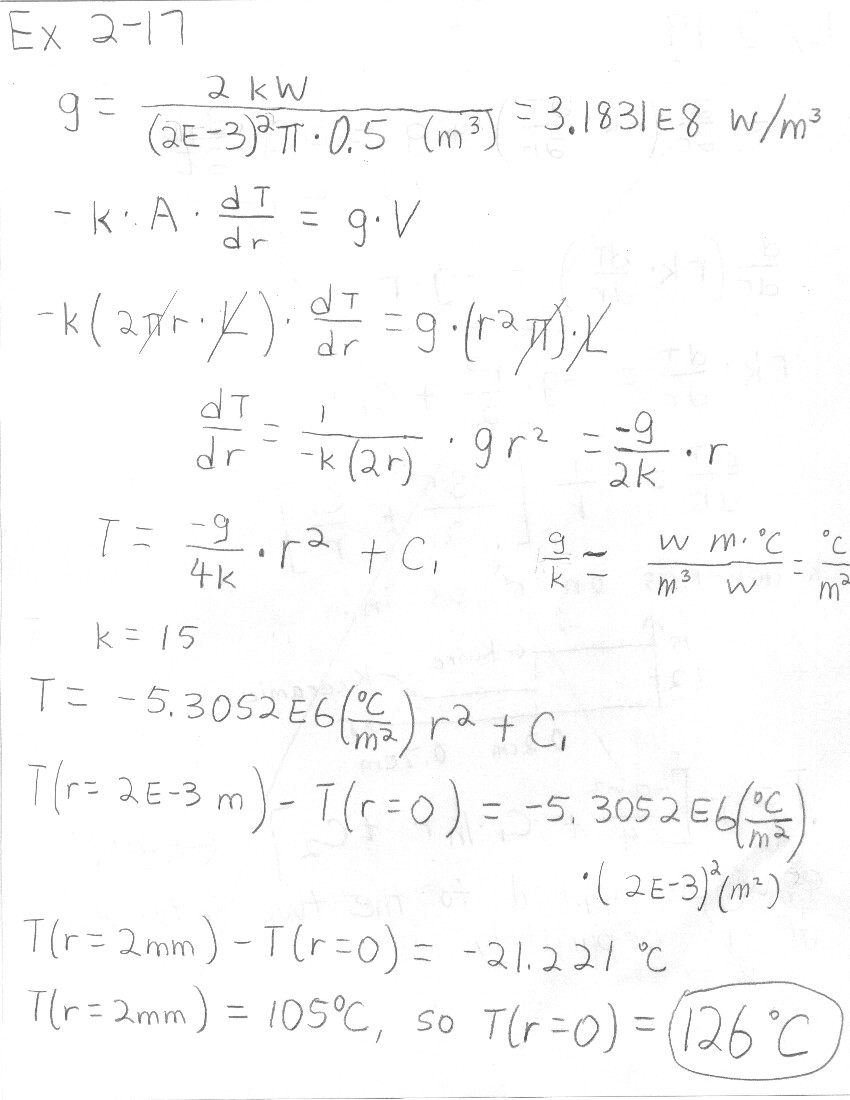 Ex 2-17
g = 2 kW / ((2E-3)²π · 0.5 (m³)) = 3.1831E8 W/m³
-k · A · dT/dr = g · V
-k (2πr · L) · dT/dr = g · (r²π) · L
dT/dr = 1/(-k(2r)) · g r² = -g/2k · r
T = -g/4k · r² + C₁ g/k = W m·°C / m³ W = °C/m²
k = 15
T = -5.3052E6 (°C/m²) r² + C₁
T(r = 2E-3 m) - T(r=0) = -5.3052E6 (°C/m²)
· (2E-3)² (m²)
T(r = 2mm) - T(r=0) = -21.221 °C
T(r = 2mm) = 105°C, so T(r=0) = 126°C